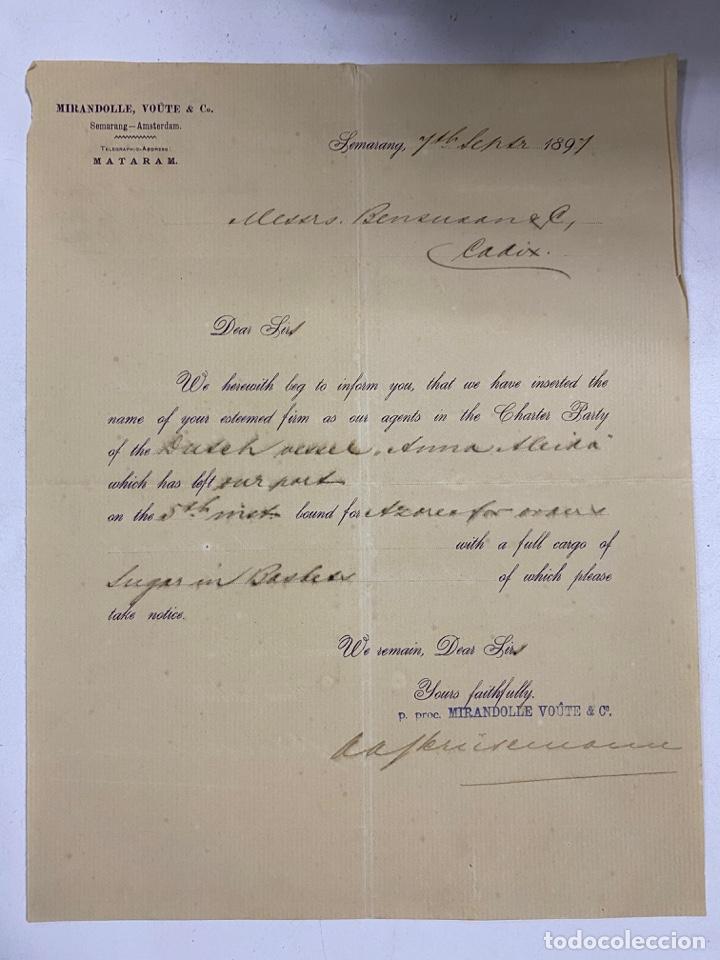 MIRANDOLLE, VOÛTE & Co.
Semarang—Amsterdam.
TELEGRAPHIC-ADDRESS:
MATARAM.
Semarang, 7th Septr 1897
Messrs. Bensusan & C,
Cadix.
Dear Sirs
We herewith beg to inform you, that we have inserted the
name of your esteemed firm as our agents in the Charter Party
of the Dutch vessel "Anna Aleida"
which has left our port
on the 5th inst. bound for Azores for orders
with a full cargo of
Sugar in Baskets of which please
take notice.
We remain, Dear Sirs
Yours faithfully.
p. proc. MIRANDOLLE VOÛTE & Co.
todocoleccion.net